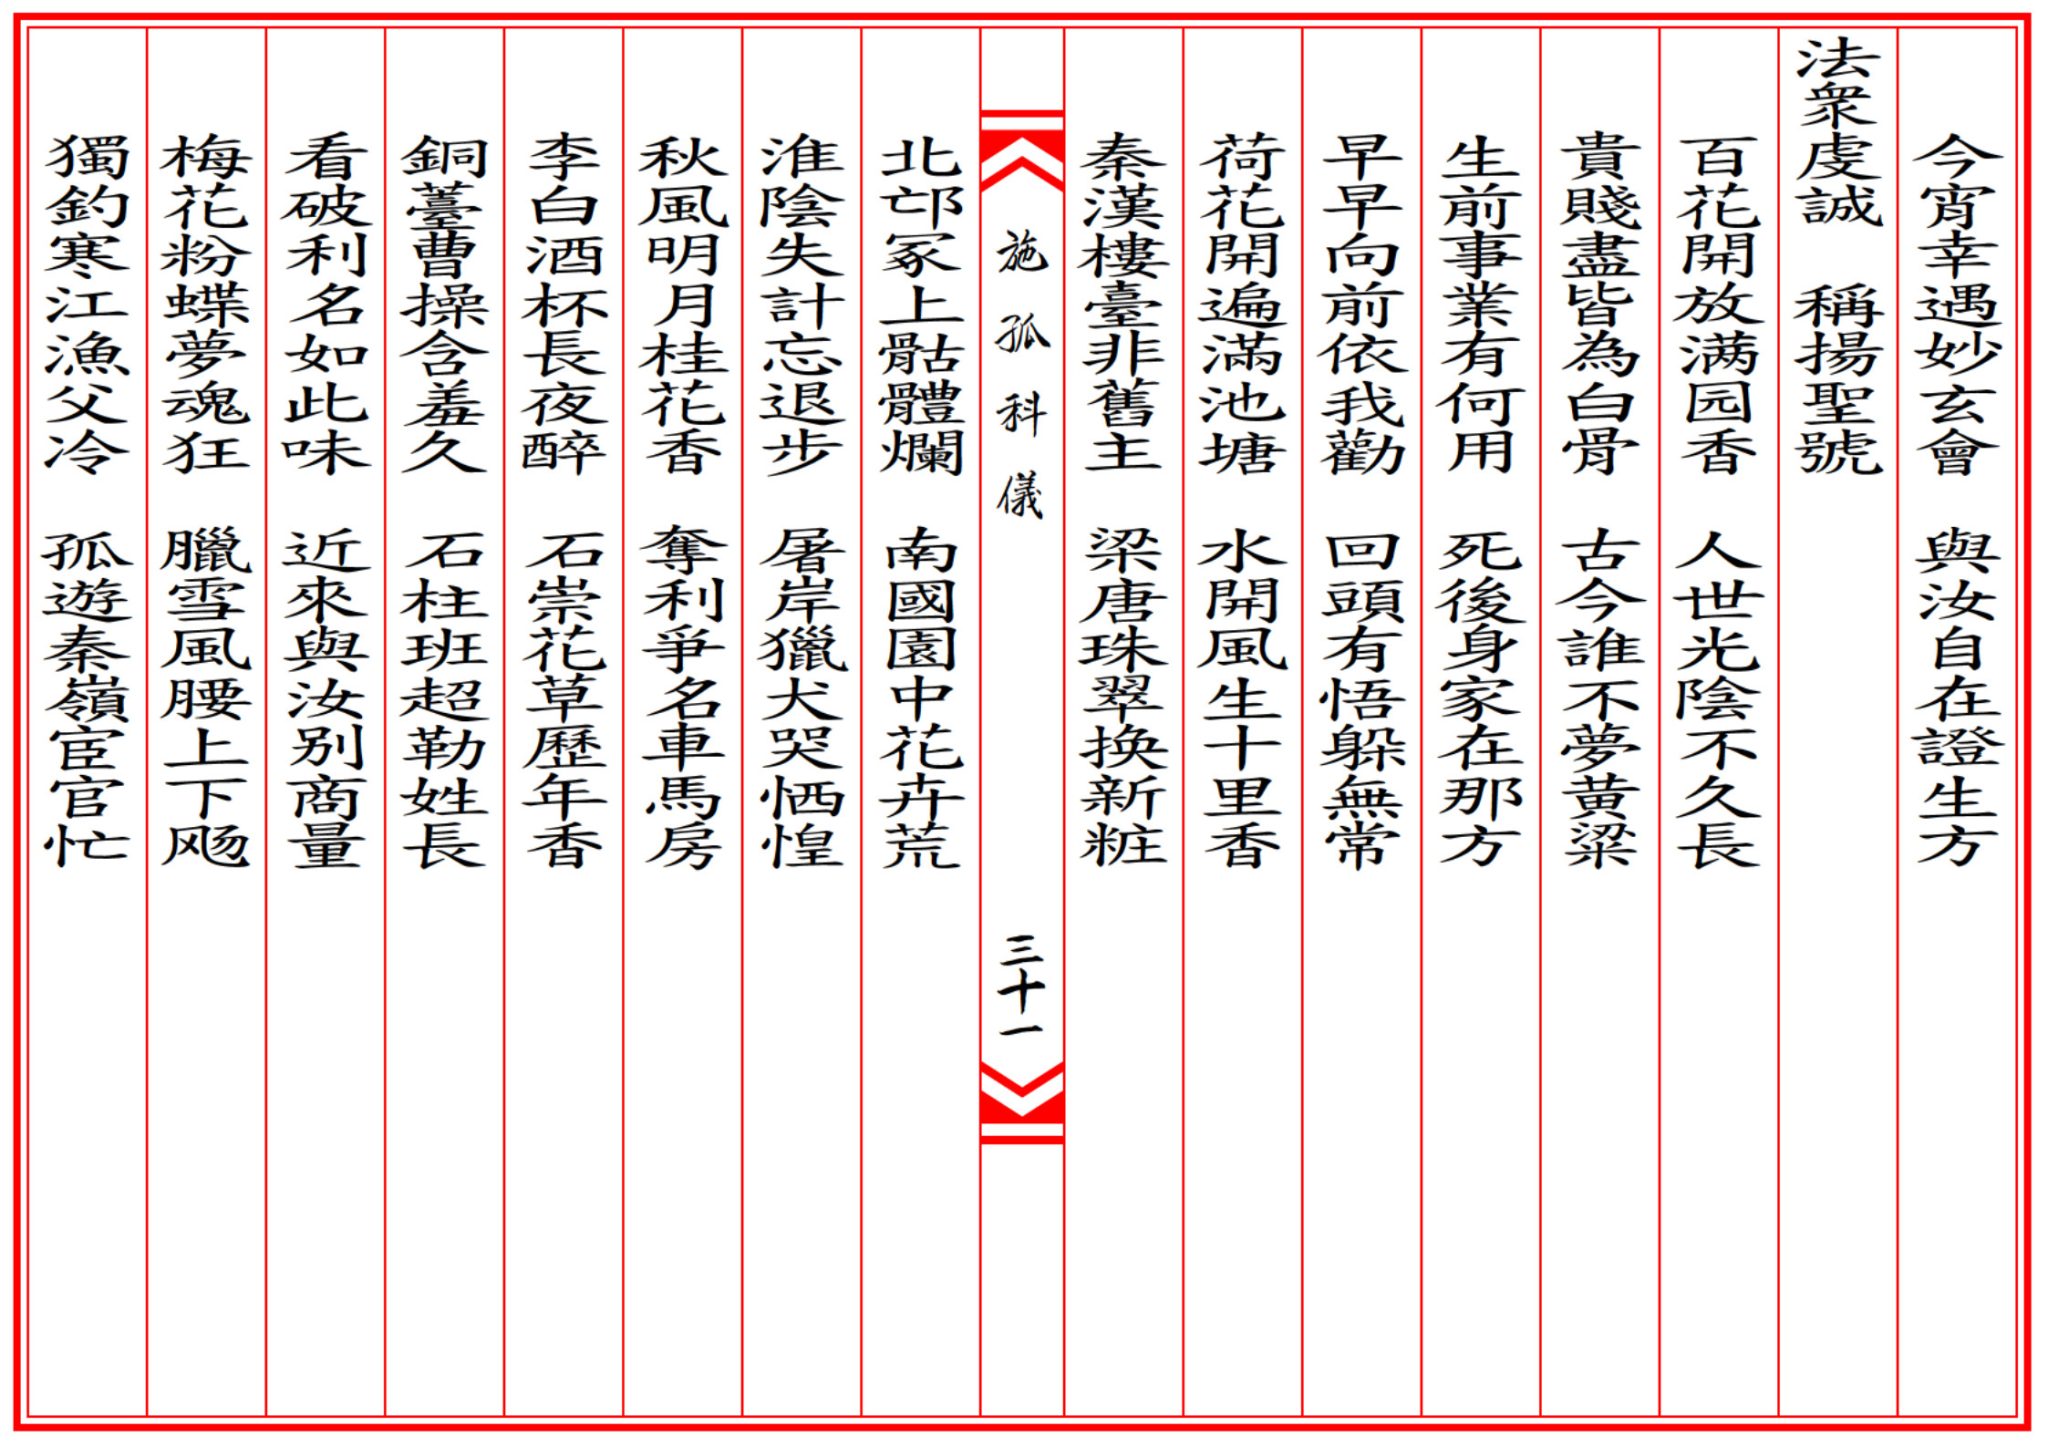 今宵幸遇妙玄會　與汝自在證生方
法衆虔誠　稱揚聖號
百花開放满园香　人世光陰不久長
貴賤盡皆為白骨　古今誰不夢黄粱
生前事業有何用　死後身家在那方
早早向前依我勸　回頭有悟躲無常
荷花開遍滿池塘　水開風生十里香
秦漢樓臺非舊主　梁唐珠翠换新粧
施孤科儀　三十一
北邙冢上骷體爛　南國園中花卉荒
淮陰失計忘退步　屠岸獵犬哭恓惶
秋風明月桂花香　奪利爭名車馬房
李白酒杯長夜醉　石崇花草歷年香
銅薹曹操含羞久　石柱班超勒姓長
看破利名如此味　近來與汝别商量
梅花粉蝶夢魂狂　臘雪風腰上下飏
獨釣寒江漁父冷　孤遊秦嶺宦官忙